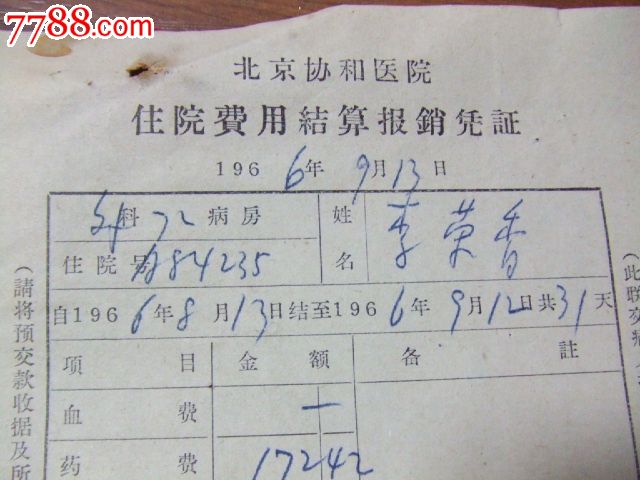 7788.com
北京协和医院
住院費用結算报銷凭証
1966年9月13日
外科72病房 姓名 李荣香
住院号 A84235
自1966年8月13日结至1966年9月12日共31天
項目 金額 备註
血費 一
药費 17242
(請将预交款收据及所
(此联交病